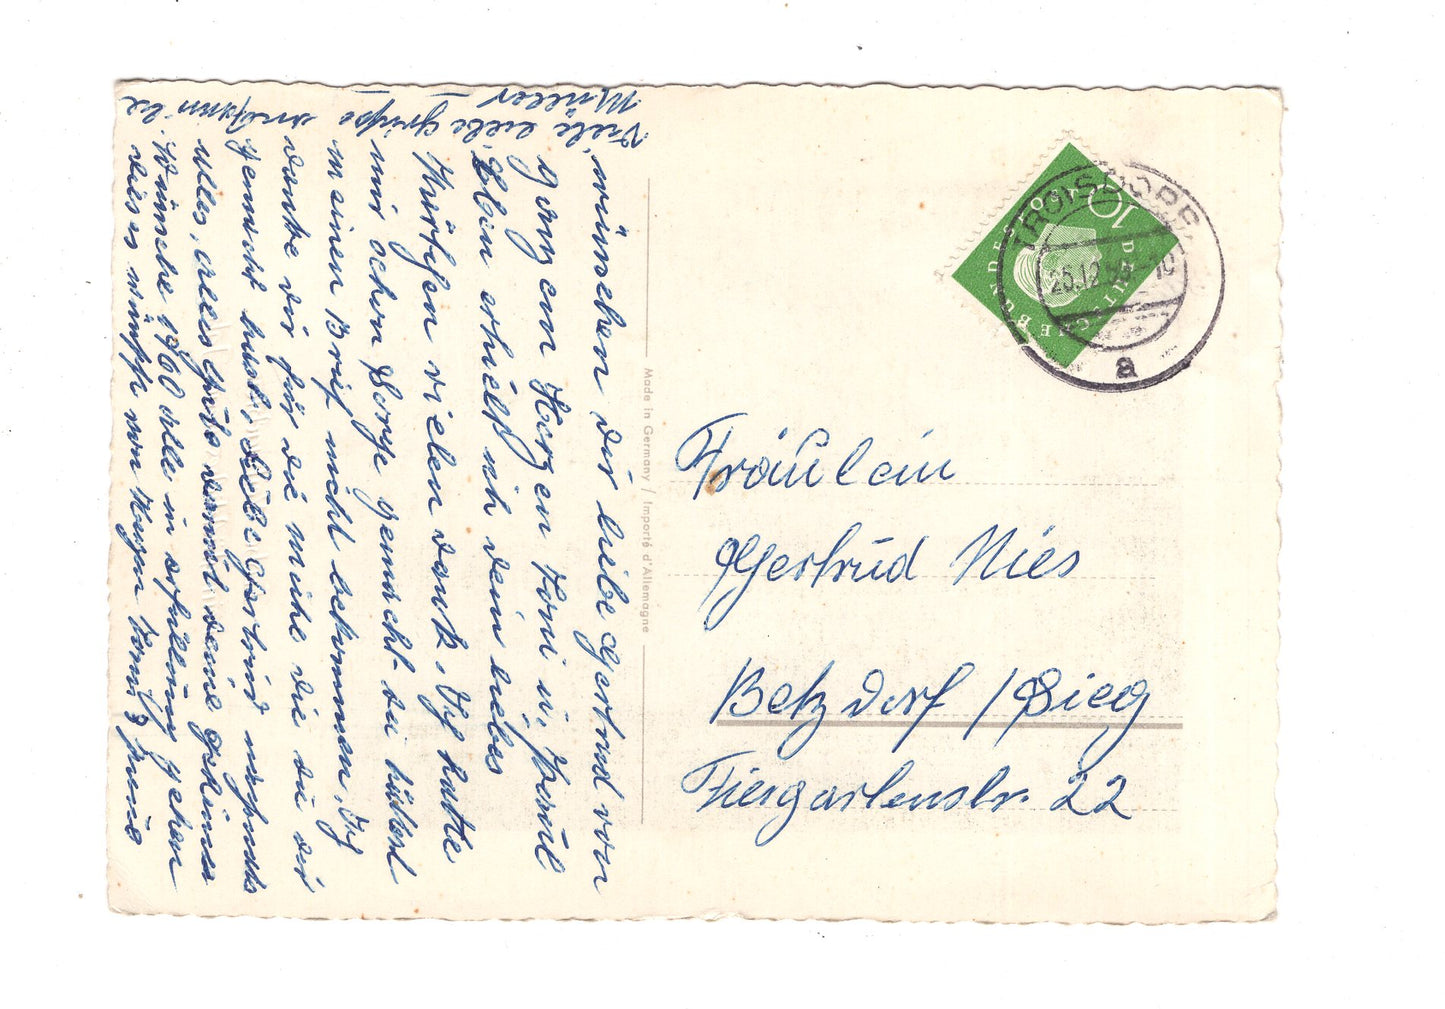 wünschen dir liebe Gertrud von
ganzem Herzen Toni u. Paul
Eben erhielt ich dein liebes
Kärtchen vielen Dank. Ich hatte
mir schon Sorge gemacht du hättest
meinen Brief nicht bekommen. Ich
danke dir für die Mühe die du dir
gemacht hast. Liebe Gertrud nochmals
alles, alles Gute damit deine
Wünsche 1960 alle in erfüllung gehen
dieses wünscht von Herzen Toni
Viele liebe Grüsse
Müller
Made in Germany / Importé d'Allemagne
DEUTSCHE BUNDESPOST
10
TROISDORF
25.12.59-10
a
Fräulein
Gertrud Nies
Betzdorf / Sieg
Tiergartenstr. 22